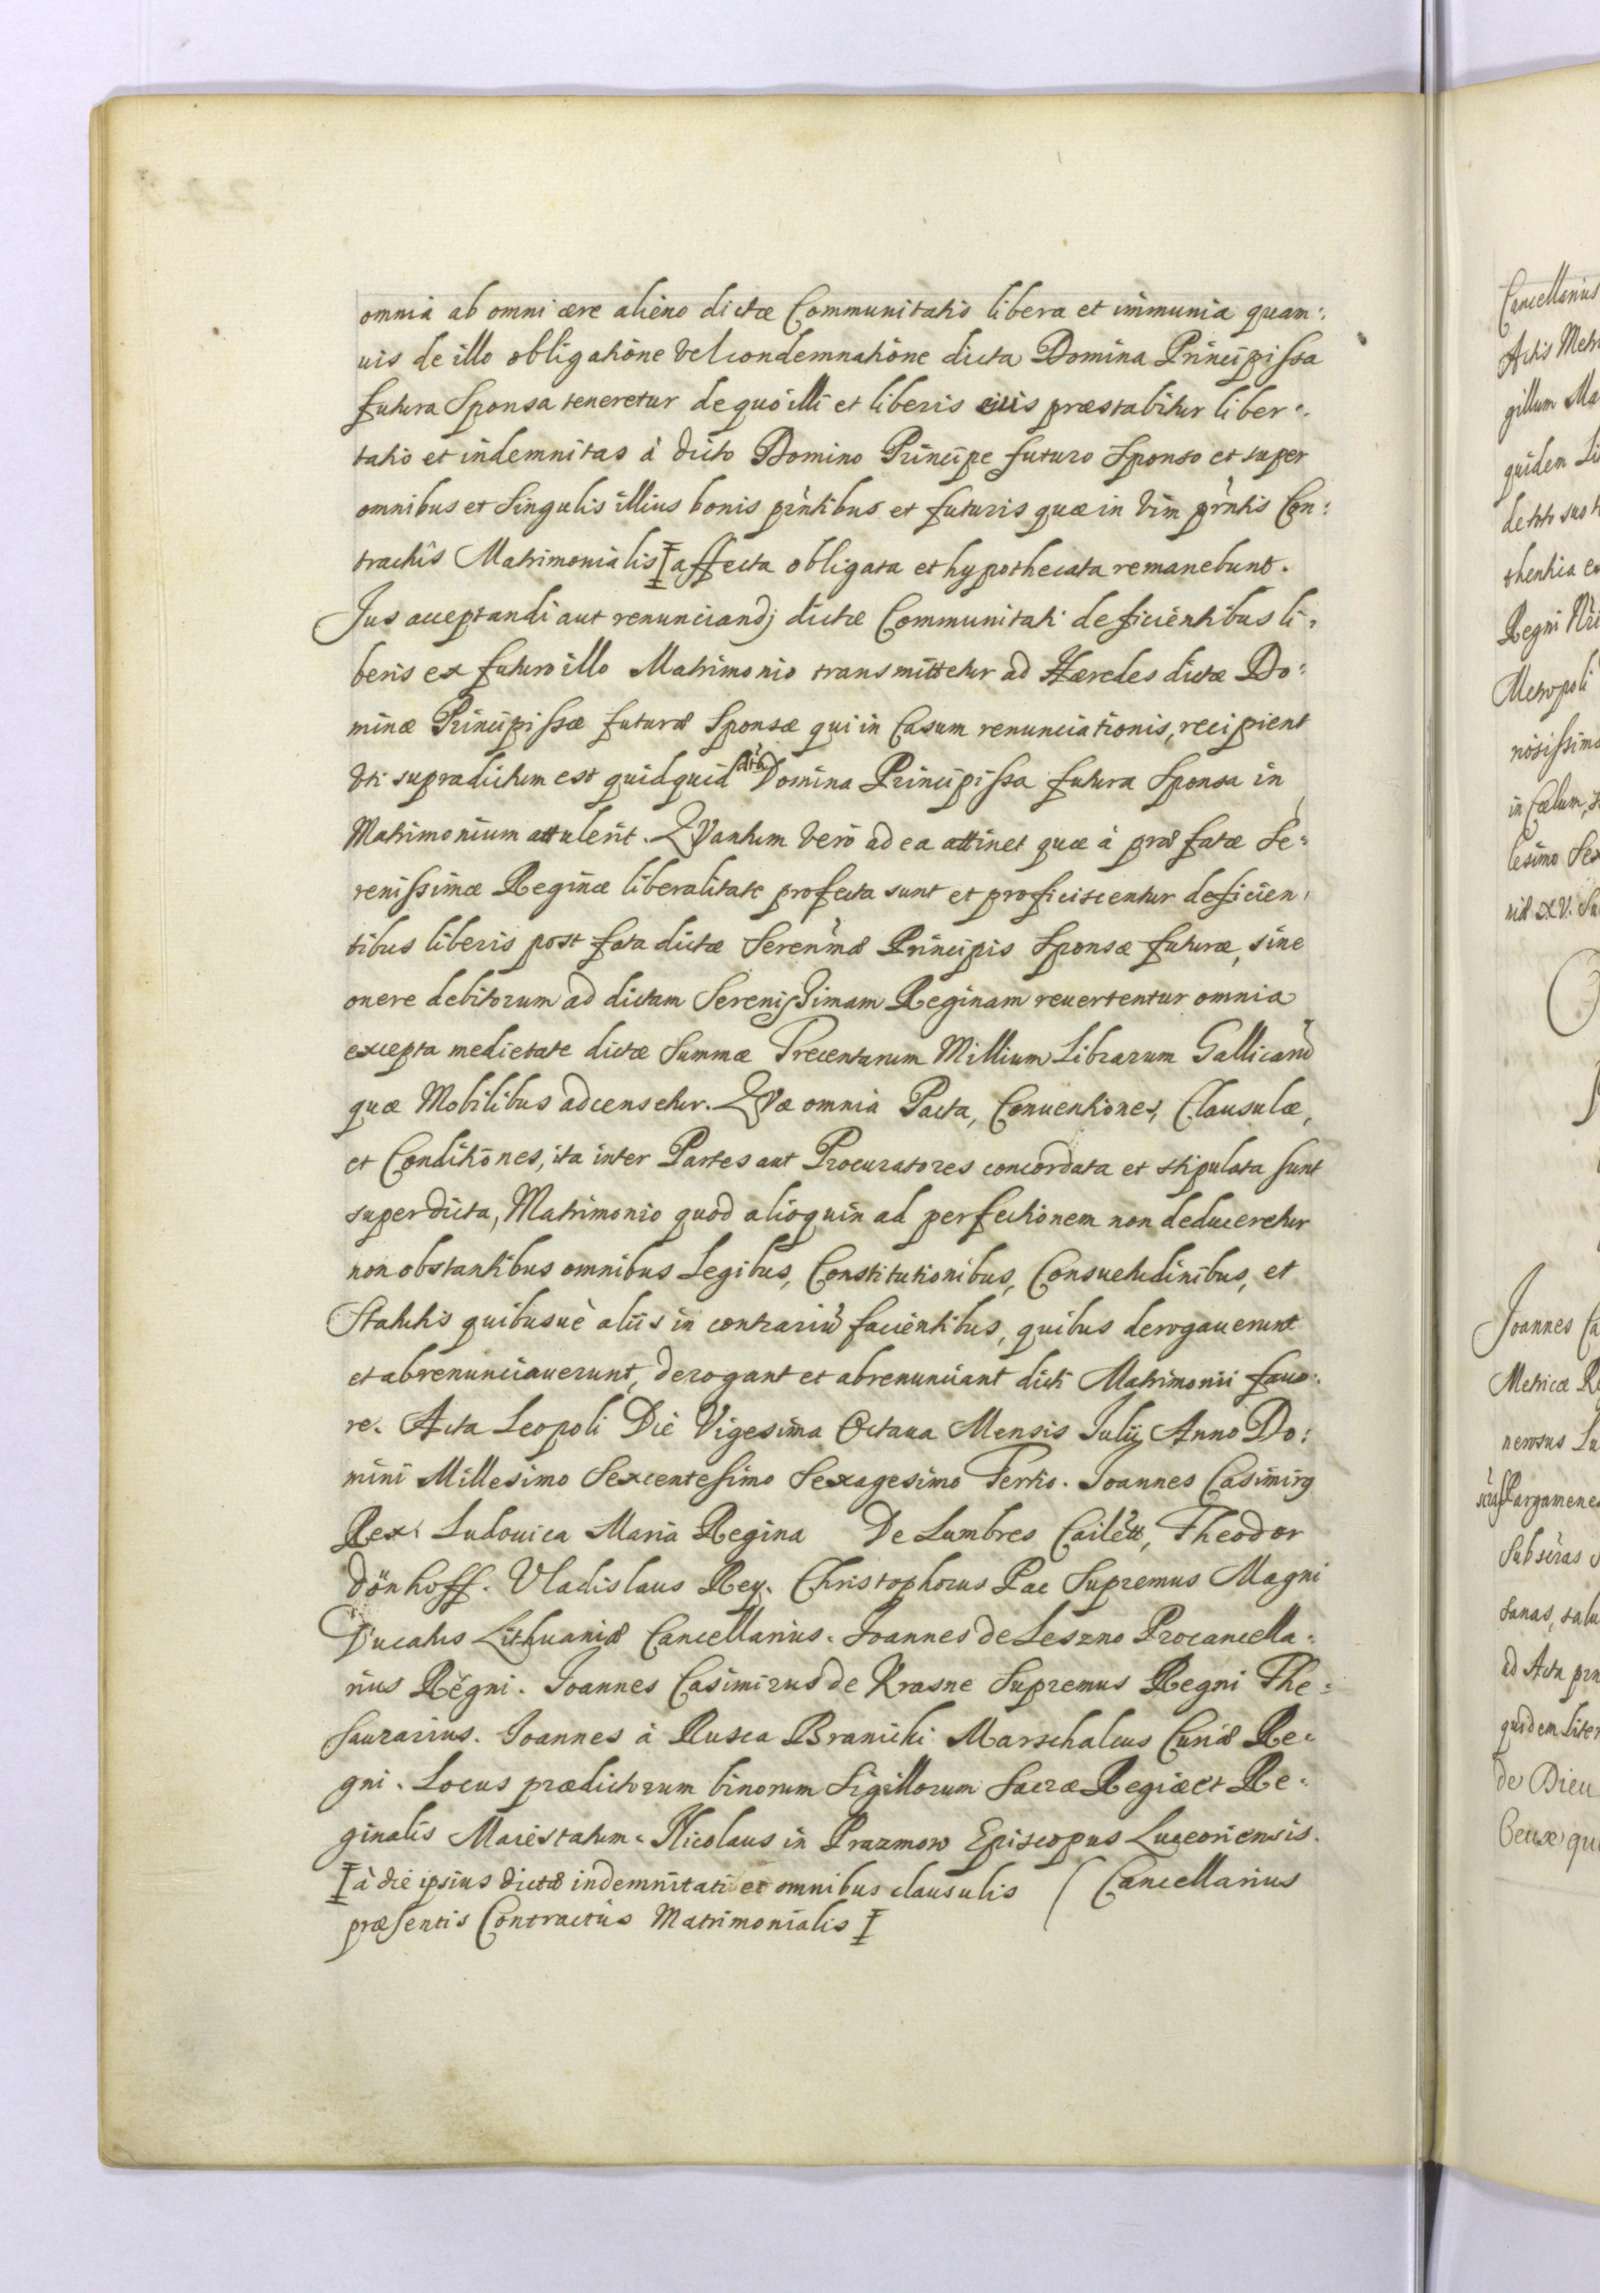 omnia ab omni ære alieno dictæ Communitatis libera et immunia quam:
uis de illo obligatione vel condemnatione dicta Domina Principissa
futura Sponsa teneretur de quo illi et liberis eius præstabitur liber:
tatis et indemnitas à dicto Domino Principe futuro Sponso et super
omnibus et singulis illius bonis pr̀ntibus et futuris quæ in vim pr̀ntis Con:
tractus Matrimonialis I affecta obligata et hypothecata remanebunt.
Jus acceptandi aut renunciandj dictæ Communitati deficientibus li:
beris ex futuro illo Matrimonio transmittetur ad Hæredes dictæ Do:
minæ Principissæ futuræ Sponsæ qui in Casum renunciationis, recipient
vti supradictum est quidquid dicta Domina Principissa futura Sponsa in
Matrimonium attulerit. QVantum verò ad ea attinet quæ à præfatæ Se:
renissimæ Reginæ liberalitate profecta sunt et proficiscentur deficien:
tibus liberis post fata dictæ Seren̄mæ Principis Sponsæ futuræ, sine
onere debitorum ad dictam Serenissimam Reginam reuertentur omnia
excepta medietate dictæ Summæ Trecentarum Millium Librarum Gallicarū
quæ Mobilibus adcensetur. QVæ omnia Pacta, Conuentiones, Clausulæ,
et Conditiones, ita inter Partes aut Procuratores concordata et stipulata sunt
superdicta, Matrimonio quod alioquin ad perfectionem non deduceretur
non obstantibus omnibus Legibus, Constitutionibus, Consuetudinibus, et
Statutis quibusuè aliis in contrariū facientibus, quibus derogauerunt
et abrenunciauerunt, derogant et abrenunciant dicti Matrimonii fauo:
re. Acta Leopoli Die Vigesima Octaua Mensis Julij Anno Do:
mini Millesimo Sexcentesimo Sexagesimo Tertio. Joannes Casimirq
Rex. Ludouica Maria Regina De Lumbres Cailett, Theodor
Dönhoff. Vladislaus Rey. Christophorus Pac Supremus Magni
Ducatus Lithuaniæ Cancellarius. Joannes de Leszno Procancella:
rius Regni. Joannes Casimirus de Krasne Supremus Regni The:
saurarius. Joannes à Rusca Branichi Marschalcus Curiæ Re:
gni. Locus prædictorum binorum Sigillorum Sacræ Regiæ et Re:
ginalis Maiestatum. Nicolaus in Prazmow Episcopus Luceoriensis.
I à die ipsius dictæ indemnitati et omnibus clausulis ( Cancellarius
præsentis Contractus Matrimonialis I
Cancellarius
Actis Metr
gillum Ma
quidem Li
Regni
Metropoli
in Cælum,
Joannes Ca
Metricæ Re
nerosus Lu
ad Acta
quidem Liter
de Dieu
Ceux qui